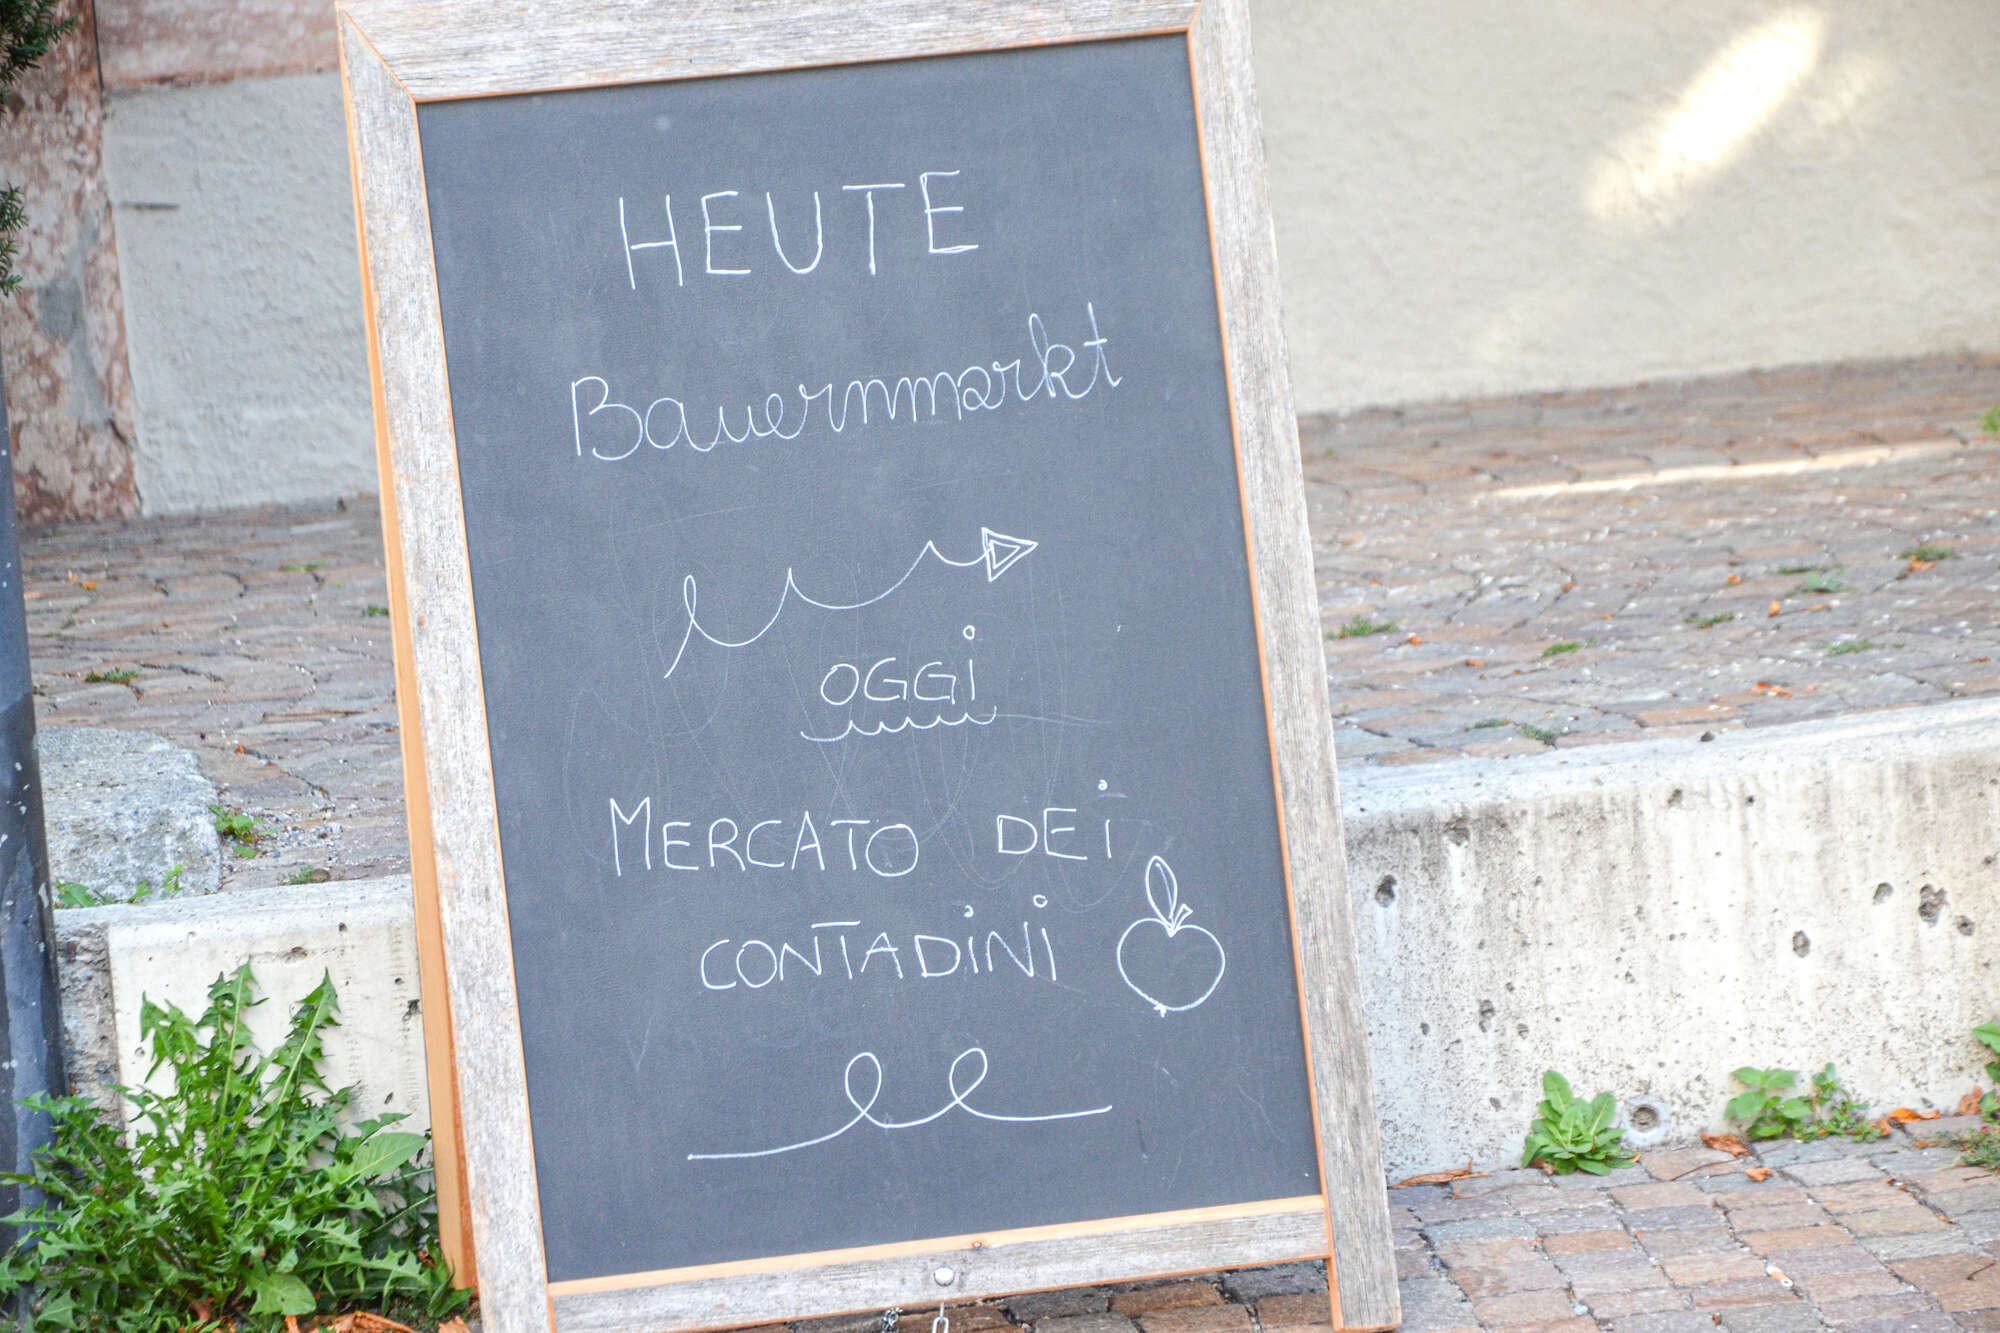 HEUTE
Bauernmarkt
OGGi
MERCATO DEi
CONTADiNi